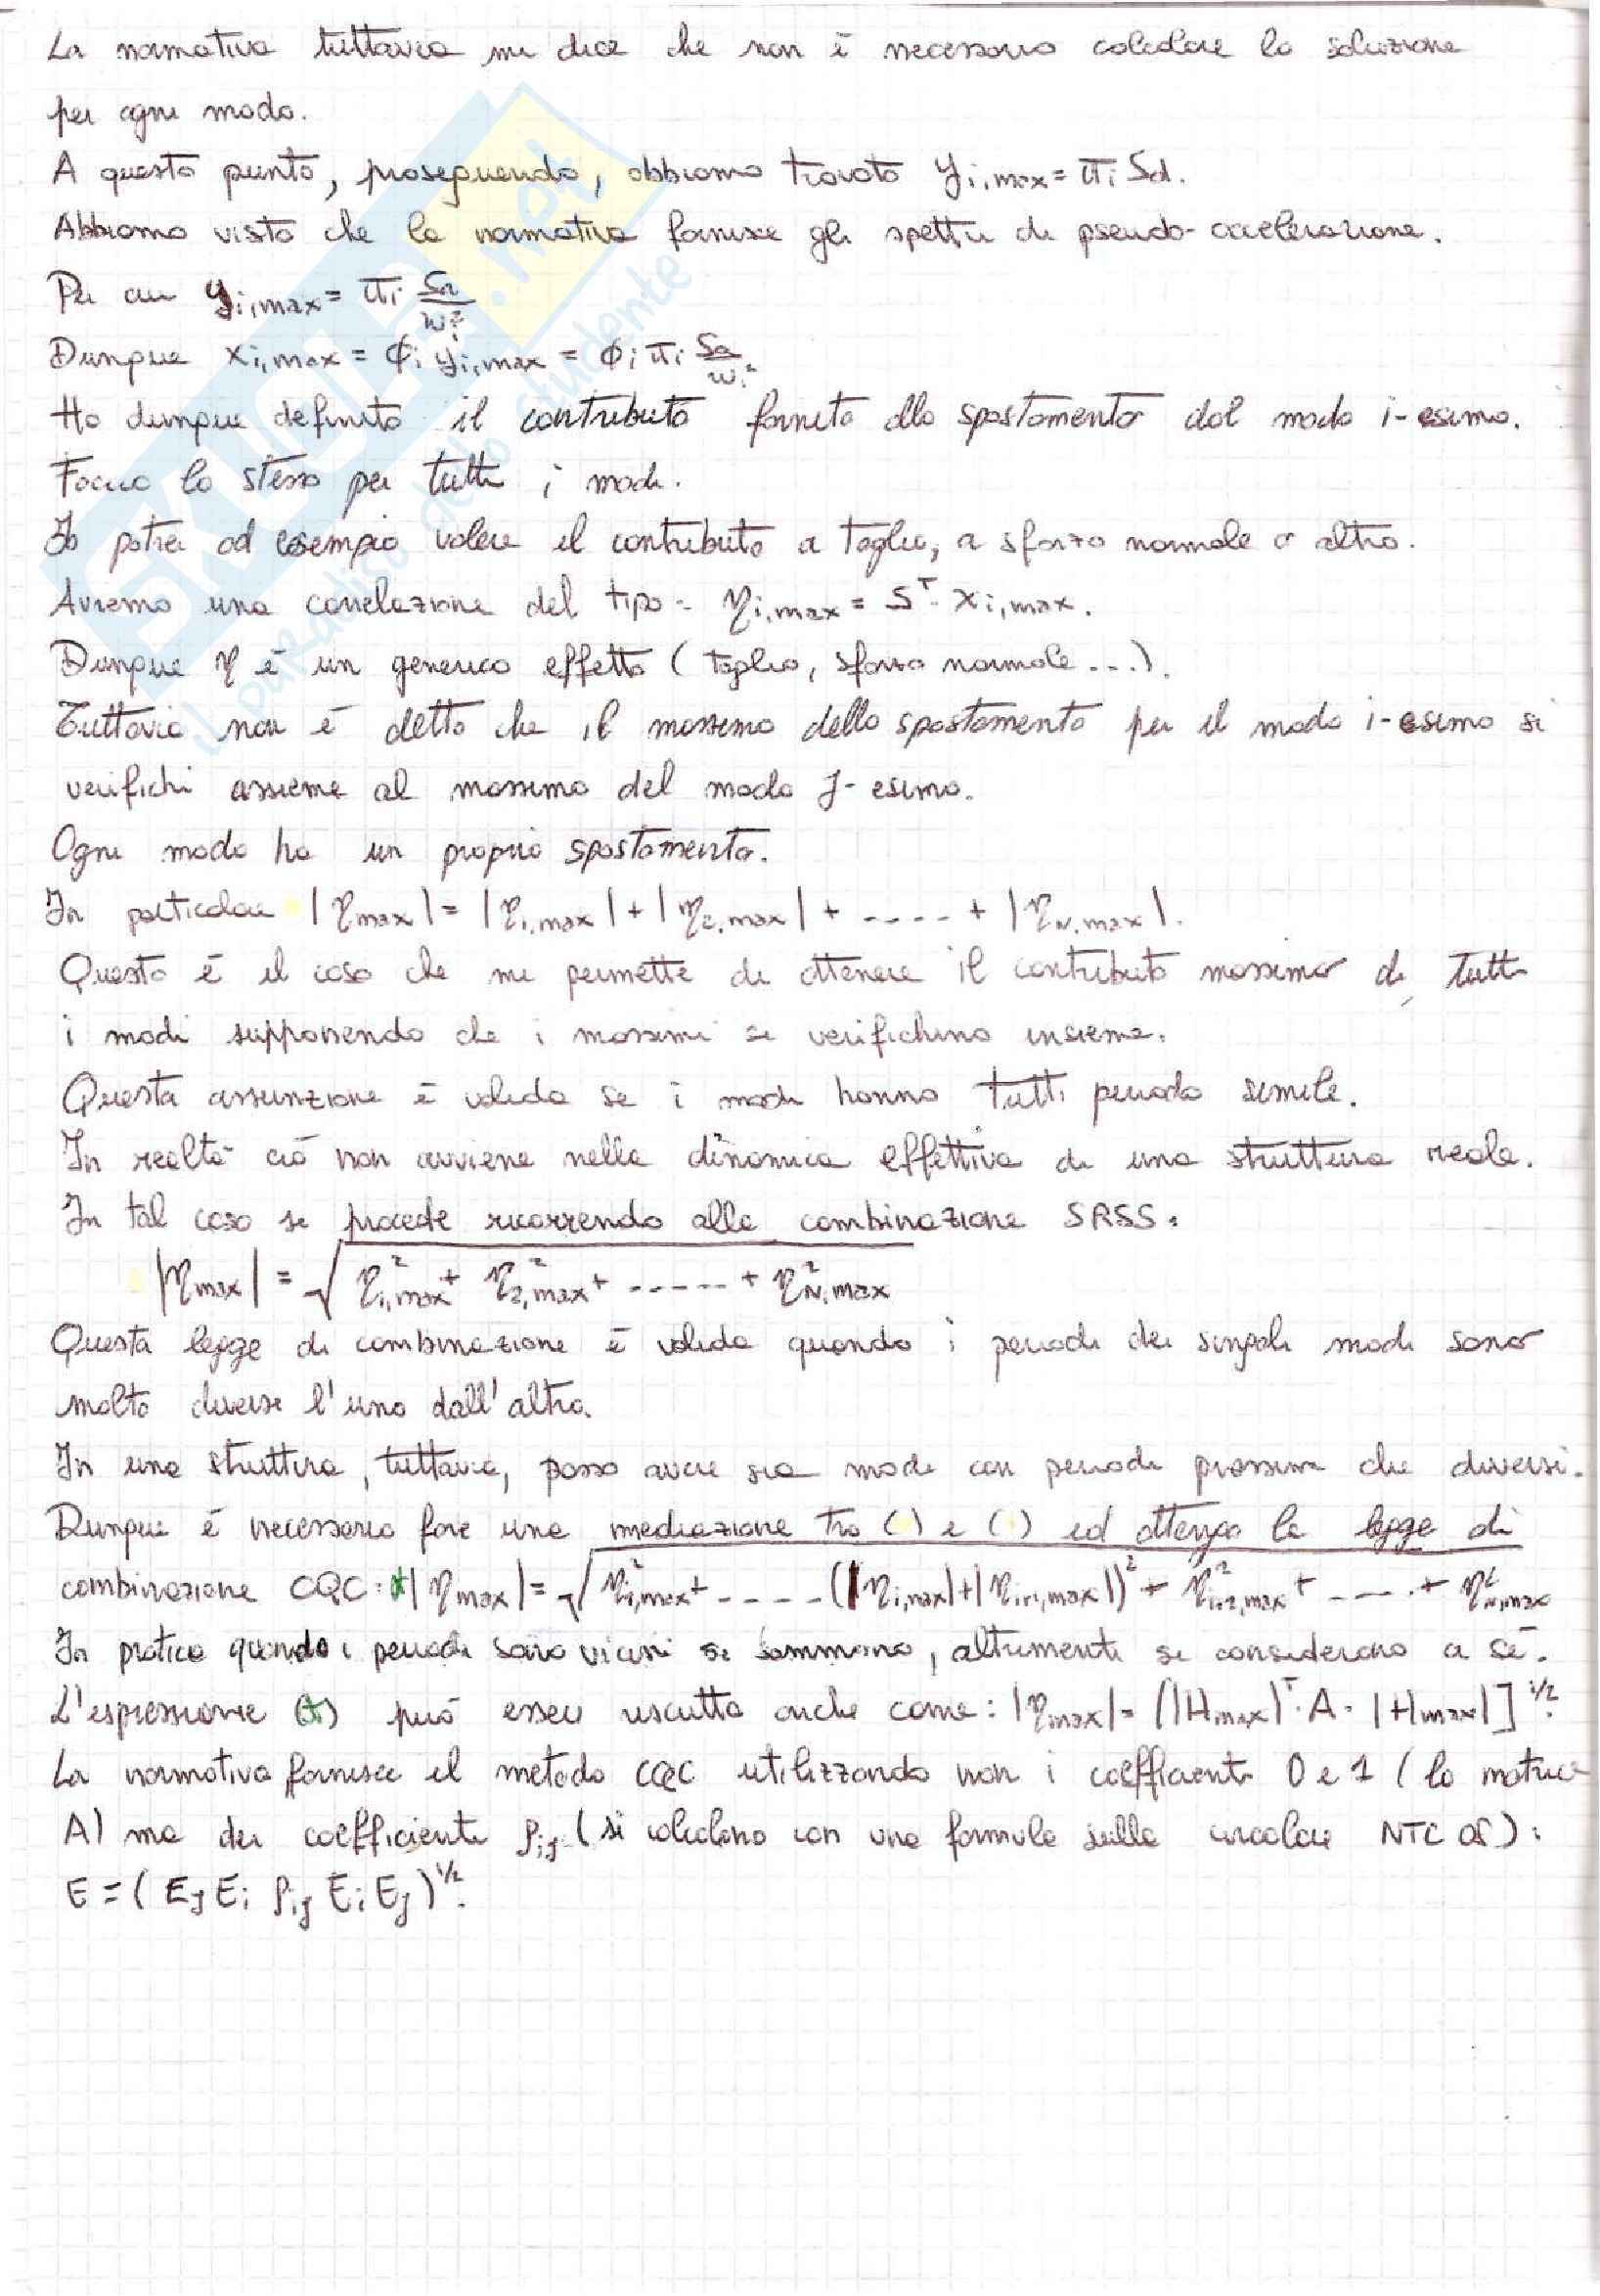 La normativa tuttavia mi dice che non è necessario calcolare la soluzione
per ogni modo.
A questo punto, proseguendo, abbiamo trovato yi,max = πi Sd.
Abbiamo visto che la normativa fornisce gli spettri di pseudo-accelerazione.
Per cui yi,max = πi Sa/wi²
Dunque xi,max = ϕi yi,max = ϕi πi Sa/wi²
Ho dunque definito il contributo fornito allo spostamento dal modo i-esimo.
Faccio lo stesso per tutti i modi.
Io potrei ad esempio volere il contributo a taglio, a sforzo normale o altro.
Avremo una correlazione del tipo: ηi,max = Sᵀ · xi,max.
Dunque η è un generico effetto (taglio, sforzo normale ...).
Tuttavia non è detto che il massimo dello spostamento per il modo i-esimo si
verifichi assieme al massimo del modo J-esimo.
Ogni modo ha un proprio spostamento.
In particolare |ηmax| = |η1,max| + |η2,max| + ..... + |ηN,max|.
Questo è il caso che mi permette di ottenere il contributo massimo di tutti
i modi supponendo che i massimi si verifichino insieme.
Questa assunzione è valida se i modi hanno tutti periodo simile.
In realtà ciò non avviene nella dinamica effettiva di una struttura reale.
In tal caso si procede ricorrendo alla combinazione SRSS:
|ηmax| = √(η²1,max + η²2,max + ...... + η²N,max)
Questa legge di combinazione è valida quando i periodi dei singoli modi sono
molto diversi l'uno dall'altro.
In una struttura, tuttavia, posso avere sia modi con periodi prossimi che diversi.
Dunque è necessario fare una mediazione tra (·) e (·) ed ottengo la legge di
combinazione CQC: *|ηmax| = √(η²1,max + ....(|ηi,max|+|ηi+1,max|)² + η²i+2,max + .... + η²N,max)
In pratica quando i periodi sono vicini si sommano, altrimenti si considerano a sé.
L'espressione (*) può essere riscritta anche come: |ηmax| = [|Hmax|ᵀ · A · |Hmax|]^1/2.
La normativa fornisce il metodo CQC utilizzando non i coefficienti 0 e 1 (la matrice
A) ma dei coefficienti ρij (si calcolano con una formula sulla circolare NTC 08):
E = (Ej Ei ρij Ei Ej)^1/2.
SKUOLA.net
il paradiso dello studente